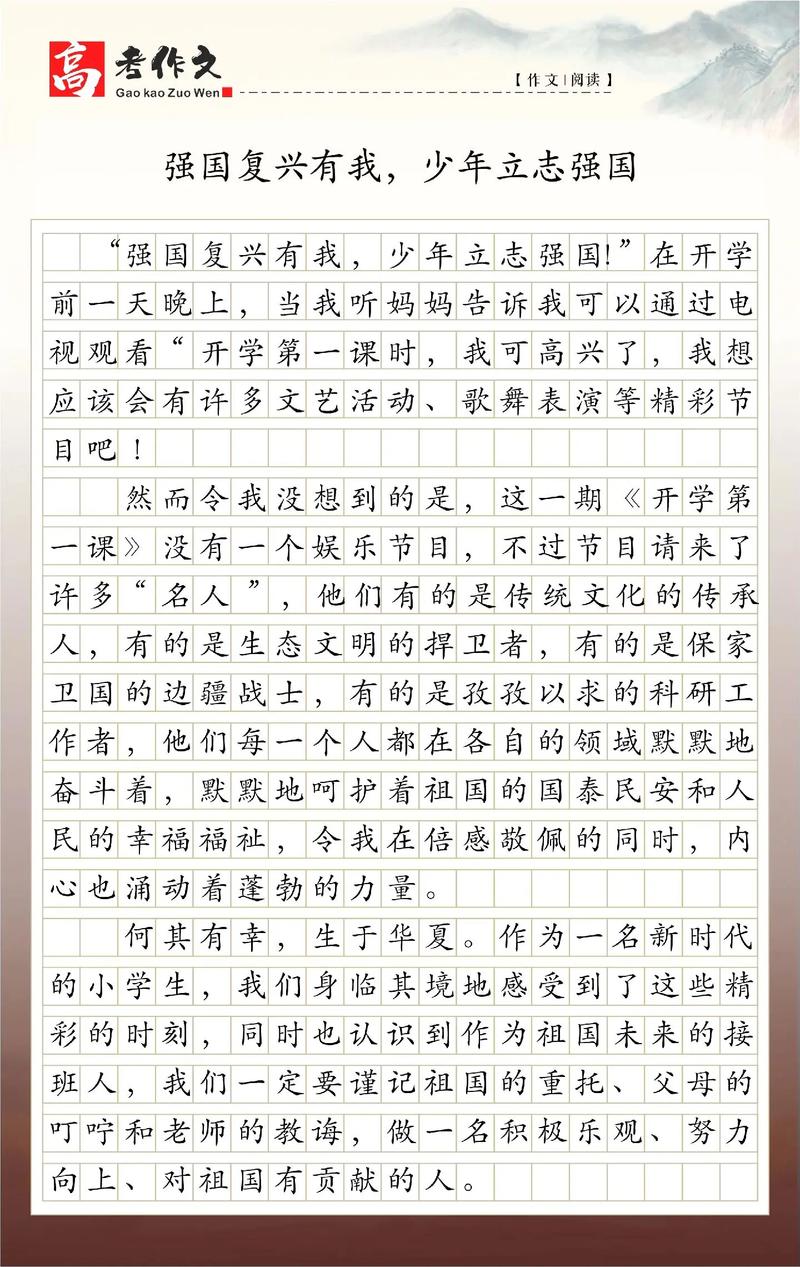 高考作文
Gao kao Zuo Wen
【作文|阅读】
强国复兴有我，少年立志强国
“强国复兴有我，少年立志强国!”在开学
前一天晚上，当我听妈妈告诉我可以通过电
视观看“开学第一课时，我可高兴了，我想
应该会有许多文艺活动、歌舞表演等精彩节
目吧！
然而令我没想到的是，这一期《开学第
一课》没有一个娱乐节目，不过节目请来了
许多“名人”，他们有的是传统文化的传承
人，有的是生态文明的捍卫者，有的是保家
卫国的边疆战士，有的是孜孜以求的科研工
作者，他们每一个人都在各自的领域默默地
奋斗着，默默地呵护着祖国的国泰民安和人
民的幸福福祉，令我在倍感敬佩的同时，内
心也涌动着蓬勃的力量。
何其有幸，生于华夏。作为一名新时代
的小学生，我们身临其境地感受到了这些精
彩的时刻，同时也认识到作为祖国未来的接
班人，我们一定要谨记祖国的重托、父母的
叮咛和老师的教诲，做一名积极乐观、努力
向上、对祖国有贡献的人。